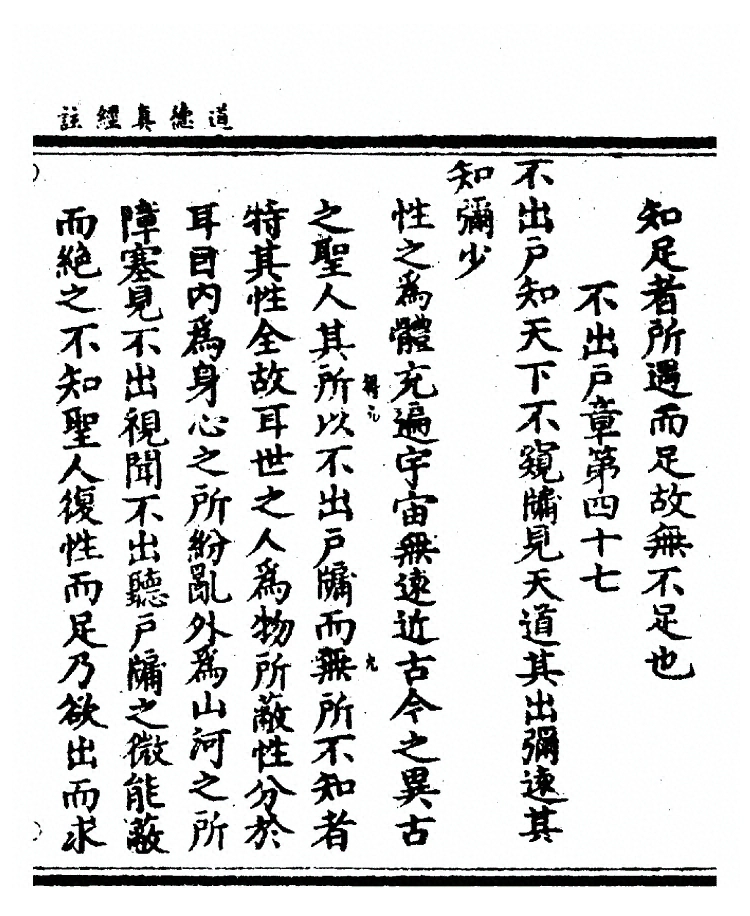 道德真經註
知足者所遇而足故無不足也
不出戶章第四十七
不出戶知天下不窺牖見天道其出彌遠其
知彌少
性之爲體充遍宇宙無遠近古今之異古
之聖人其所以不出戶牖而無所不知者
特其性全故耳世之人爲物所蔽性分於
耳目內爲身心之所紛亂外爲山河之所
障塞見不出視聞不出聽戶牖之微能蔽
而絶之不知聖人復性而足乃欲出而求